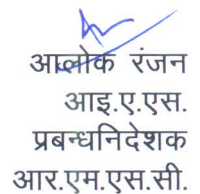 आलोक रंजन
आइ.ए.एस.
प्रबन्धनिदेशक
आर.एम.एस.सी.